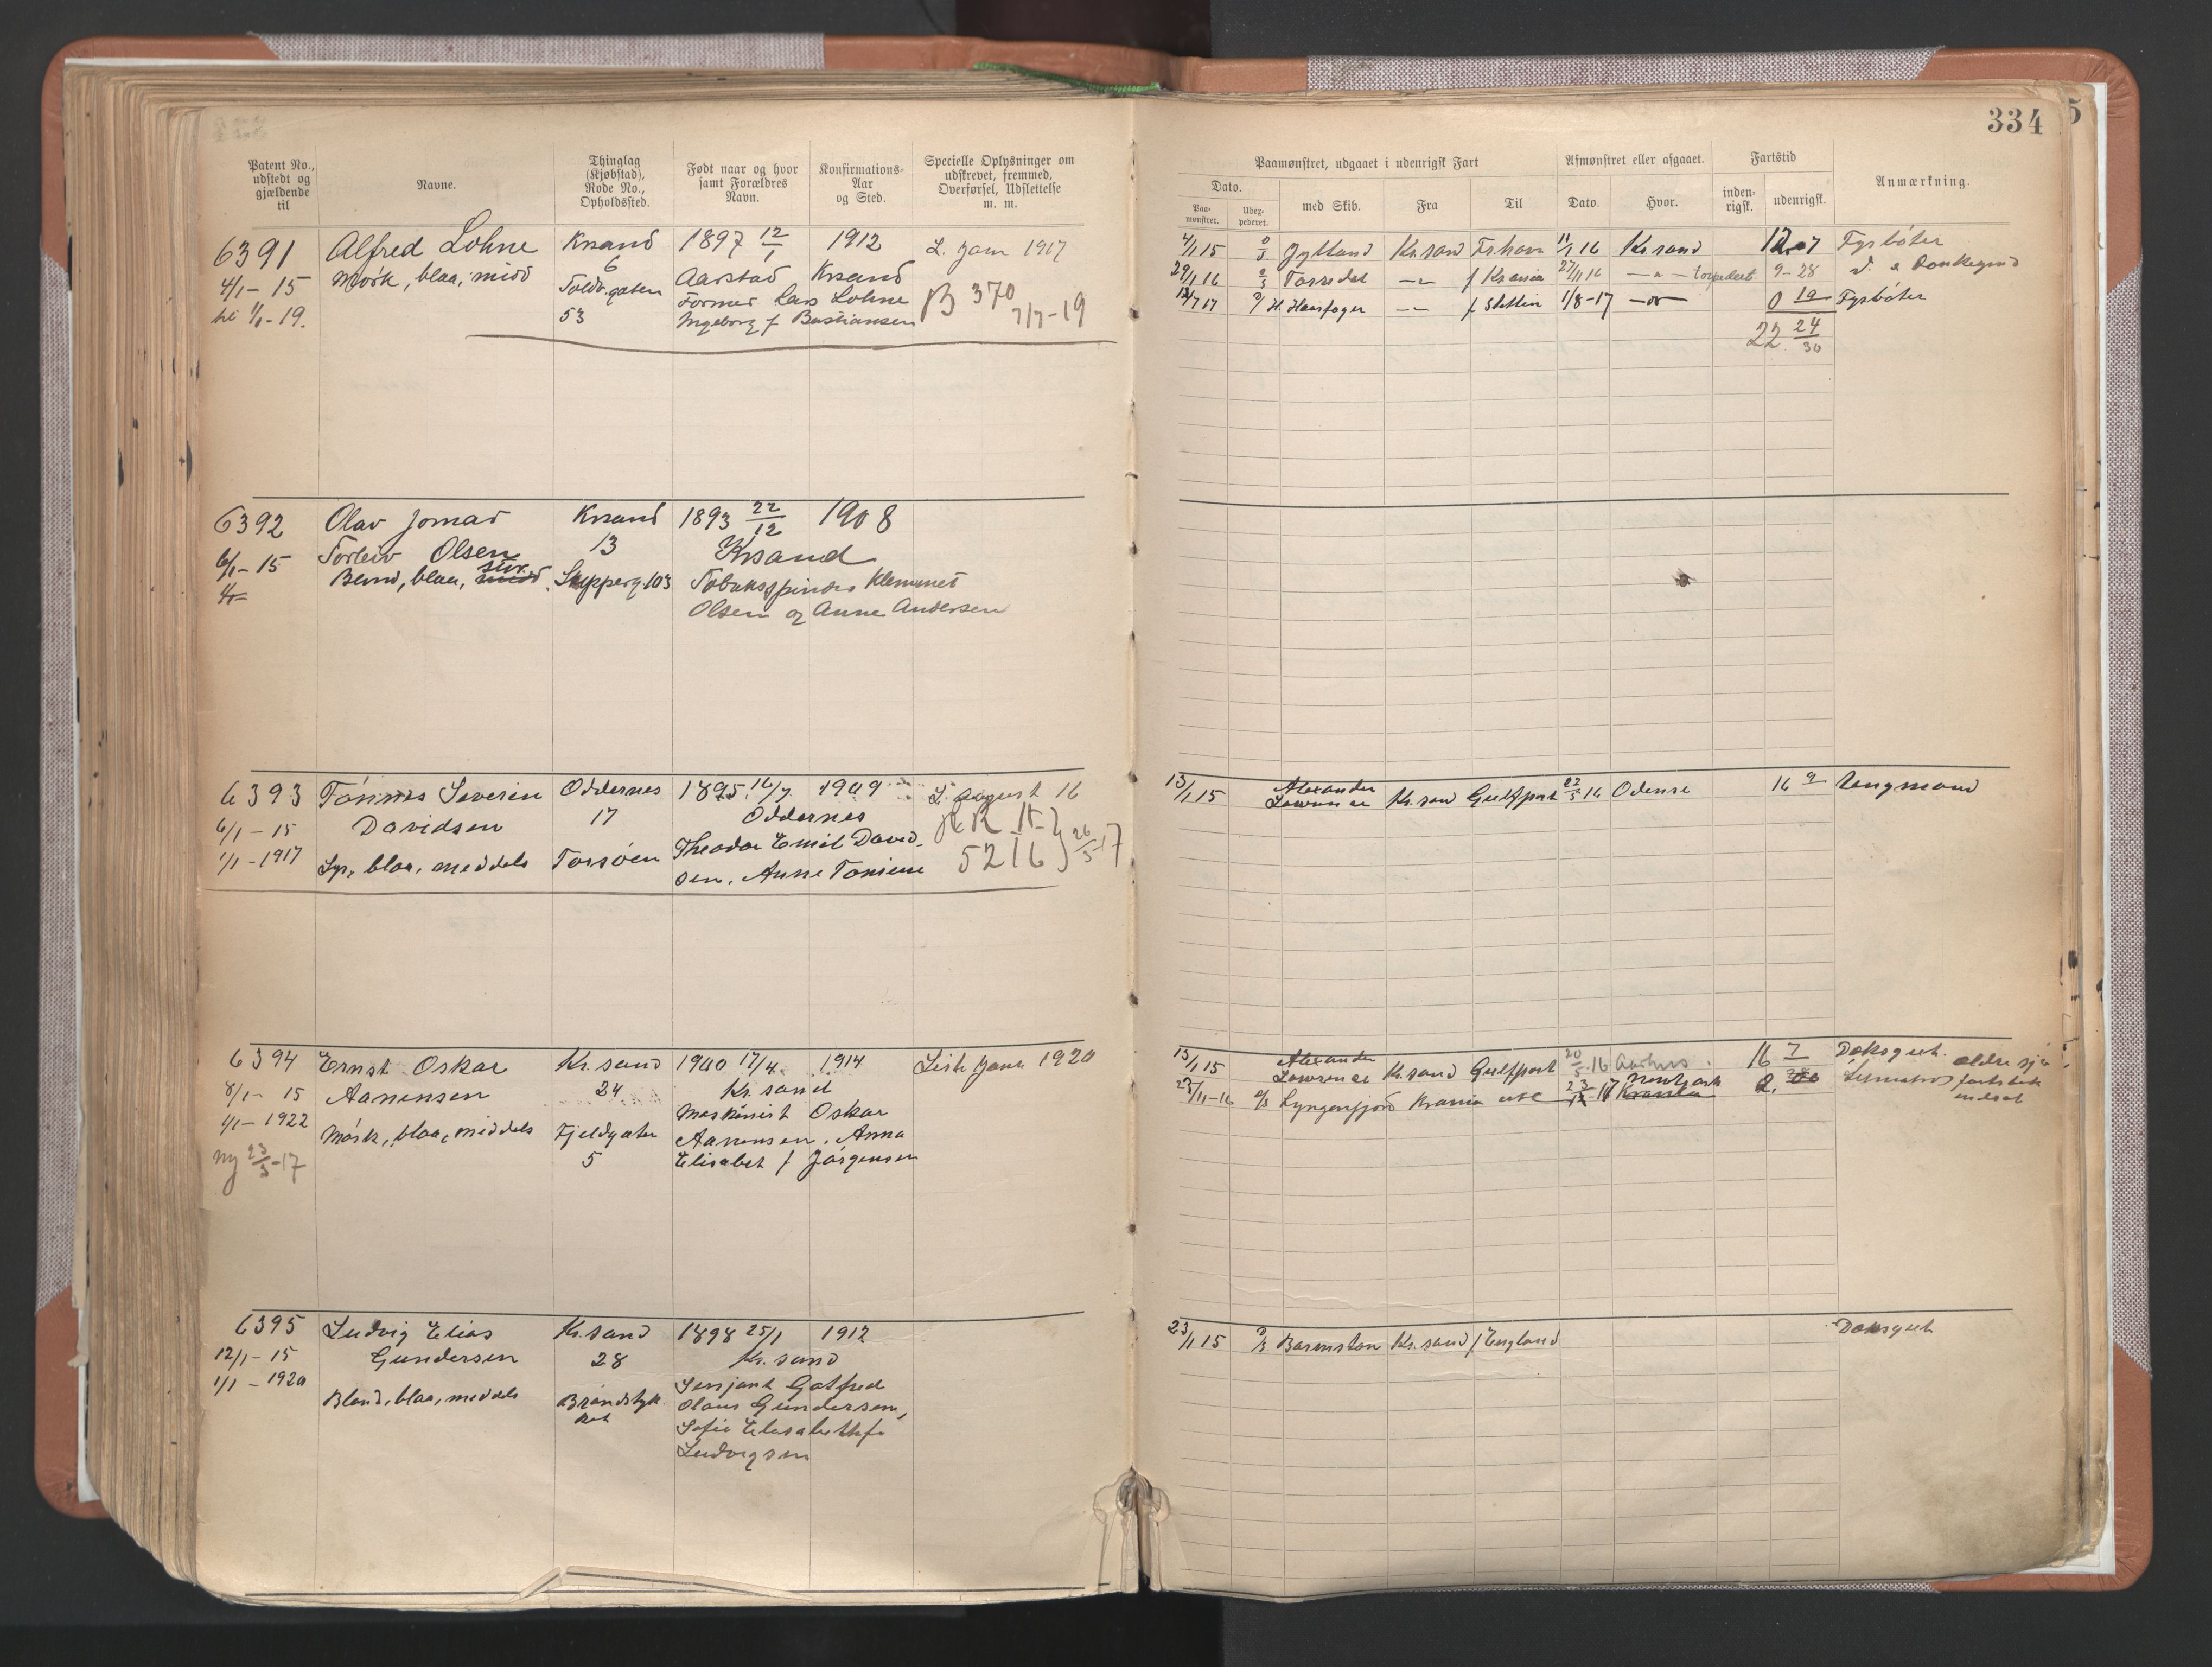 334
5
Patent No., udstedt og gjældende til
Navne.
Thinglag (Kjøbstad), Rode No., Opholdssted.
Født naar og hvor samt Forældres Navn.
Konfirmations-Aar og Sted.
Specielle Oplysninger om udskrevet, fremmed, Overførsel, Udslettelse m. m.
Paamønstret, udgaaet i udenrigsk Fart
Afmønstret eller afgaaet.
Fartstid
Anmærkning.
Dato.
Paamønstret.
Udexpederet.
med Skib.
Fra
Til
Dato.
Hvor.
indenrigsk.
udenrigsk.
6391 Alfred Lohne Krsand 1897 12/1 1912 L. Jan 1917
4/1-15 Mørk, blaa, midd 6 Aarstad Krsand
til 1/1-19. Toldb.gaten Former Lars Lohne B 370
53 Ingeborg f Bastiansen 7/7-19
4/1 15 Jylland Kr.sand Fr.havn 11/1 16 Kr.sand 12.7 Fyrbøter
29/1 16 Torsdal -"- f Krania 27/11 16 -"- torpedert 9-28
12/7 17 H. Haarfager -"- f Stettin 1/8-17 -"- 0 19 Fyrbøter
22 24/30
6392 Olav Jomar Krsand 1893 22/12 1908
6/1-15 Torleiv Olsen 13 Krsand
Blond, blaa, midd stor. Skipperg. 103 Tobaksspinder Klemmet
Olsen og Anne Andersen
6393 Tønnes Severin Oddernes 1895 16/7 1909 L. august 16
6/1-15 Davidsen 17 Oddernes
1/1-1917 Lys, blaa, middels Torsøen Theodor Emil David-
sen, Anne Toniene 5216 26/5-17
13/1 15 Alexander Lawrence Kr.sand Gulfport 22/5 16 Odense 16 9 Ungmand
6394 Ernst Oskar Kr.sand 1900 17/4 1914 List Janr 1920
8/1-15 Aanensen 24 Kr.sand
1/1-1922 Mørk, blaa, middels Fjeldgaten Maskinist Oskar
ny 23/3-17 5 Aanensen, Anna
Elisabet f Jørgensen
13/1 15 Alexander Lawrence Kr.sand Gulfport 20/5 16 Aarhus 16 7 Dæksgut.
23/11-16 Lyngenfjord Krania
6395 Ludvig Elias Kr.sand 1898 25/1 1912
12/1-15 Gundersen 28 Kr.sand
1/1-1920 Blond, blaa, middels Brandstyk. Sersjant Gotfred
Olaus Gundersen,
Sofie Elisabeth f.
Ludvigsen
23/1 15 Barmston Kr.sand f England Dæksgut